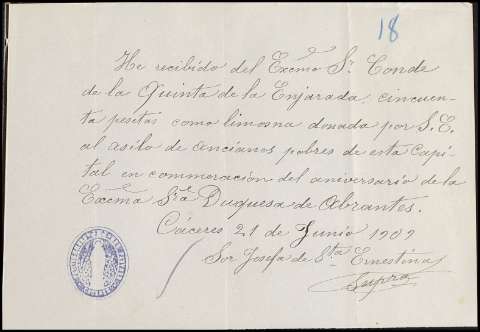 18
He recibido del Excmo Sr. Conde
de la Quinta de la Enjarada, cincuen-
ta pesetas como limosna donada por S.E.
al asilo de ancianos pobres de esta Capi-
tal en conmemoración del aniversario de la
Excma Sra Duquesa de Abrantes.
Cáceres 21 de Junio 1909
Sor Josefa de Sta Ernestina
Supra